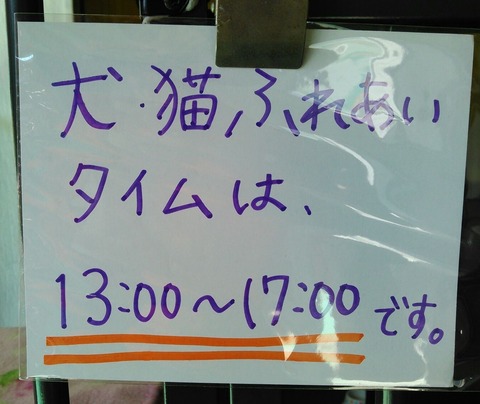 犬・猫ふれあい
タイムは、
13:00～17:00です。